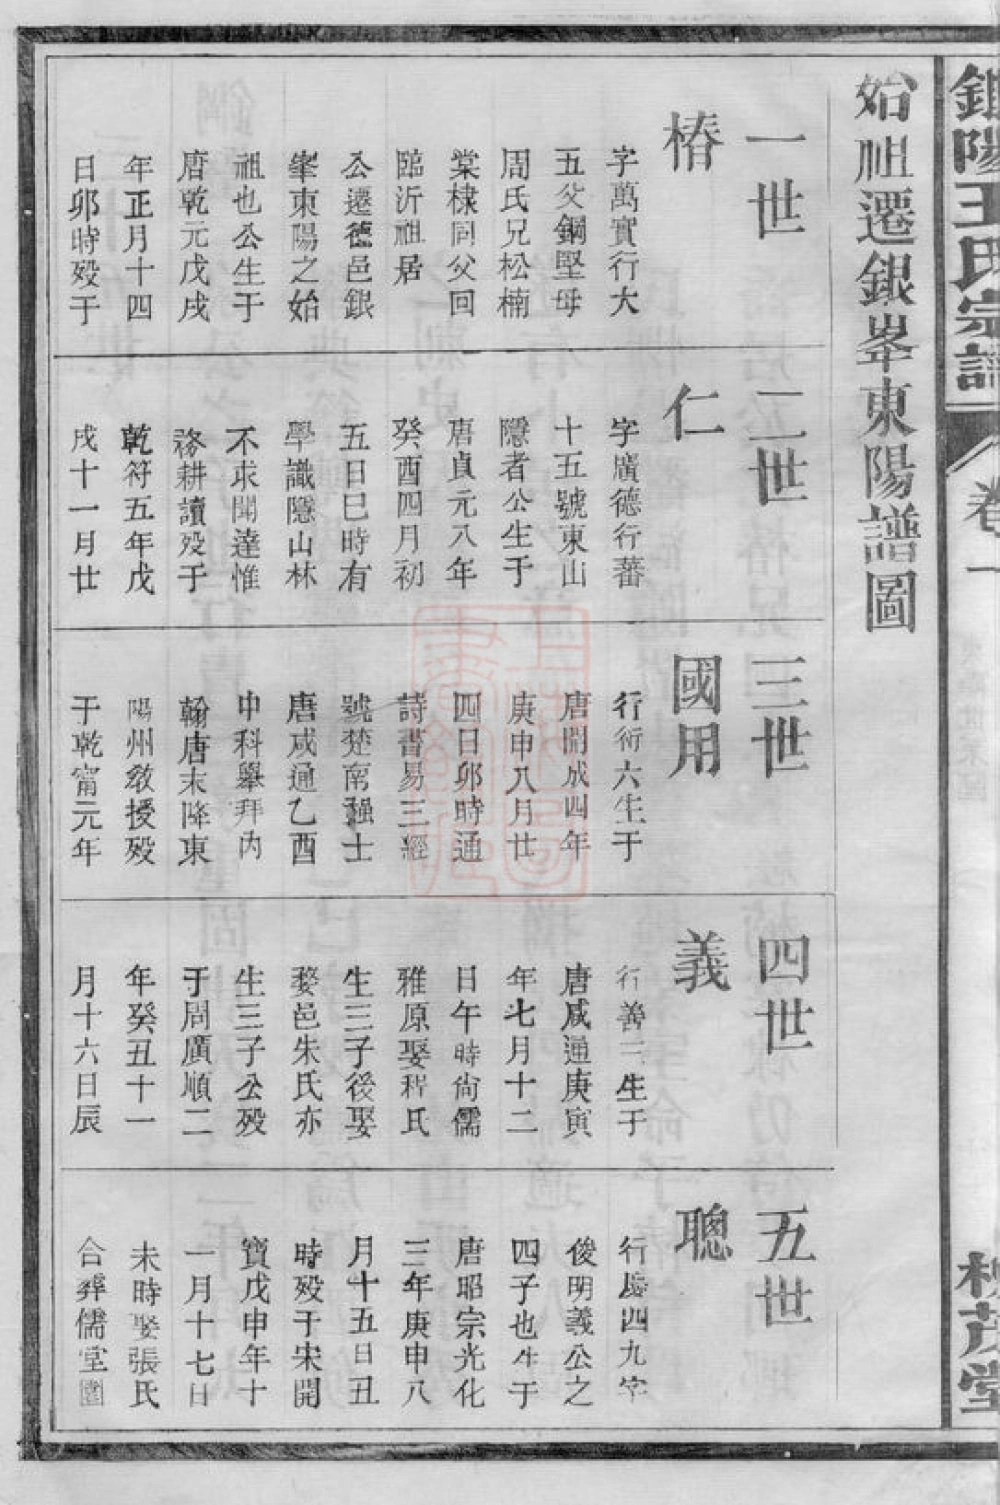 銀陽王氏宗譜
卷一
槐茂堂
始祖遷銀峯東陽譜圖
一世
椿
字萬實行大
五父鋼堅母
周氏兄松楠
棠棣同父回
臨沂祖居
公遷德邑銀
峯東陽之始
祖也公生于
唐乾元戊戌
年正月十四
日卯時殁于
二世
仁
字廣德行蕃
十五號東山
隱者公生于
唐貞元八年
癸酉四月初
五日巳時有
學識隱山林
不求聞達惟
務耕讀殁于
乾符五年戊
戌十一月廿
三世
國用
行術六生于
唐開成四年
庚申八月廿
四日卯時通
詩書易三經
號楚南強士
唐咸通乙酉
中科舉拜內
翰唐末降東
陽州敎授殁
于乾甯元年
四世
義
行善二生于
唐咸通庚寅
年七月十二
日午時尙儒
雅原娶程氏
生三子後娶
婺邑朱氏亦
生三子公殁
于周廣順二
年癸丑十一
月十六日辰
五世
聰
行慶四九字
俊明義公之
四子也生于
唐昭宗光化
三年庚申八
月十五日丑
時殁于宋開
寶戊申年十
一月十七日
未時娶張氏
合葬儒堂園